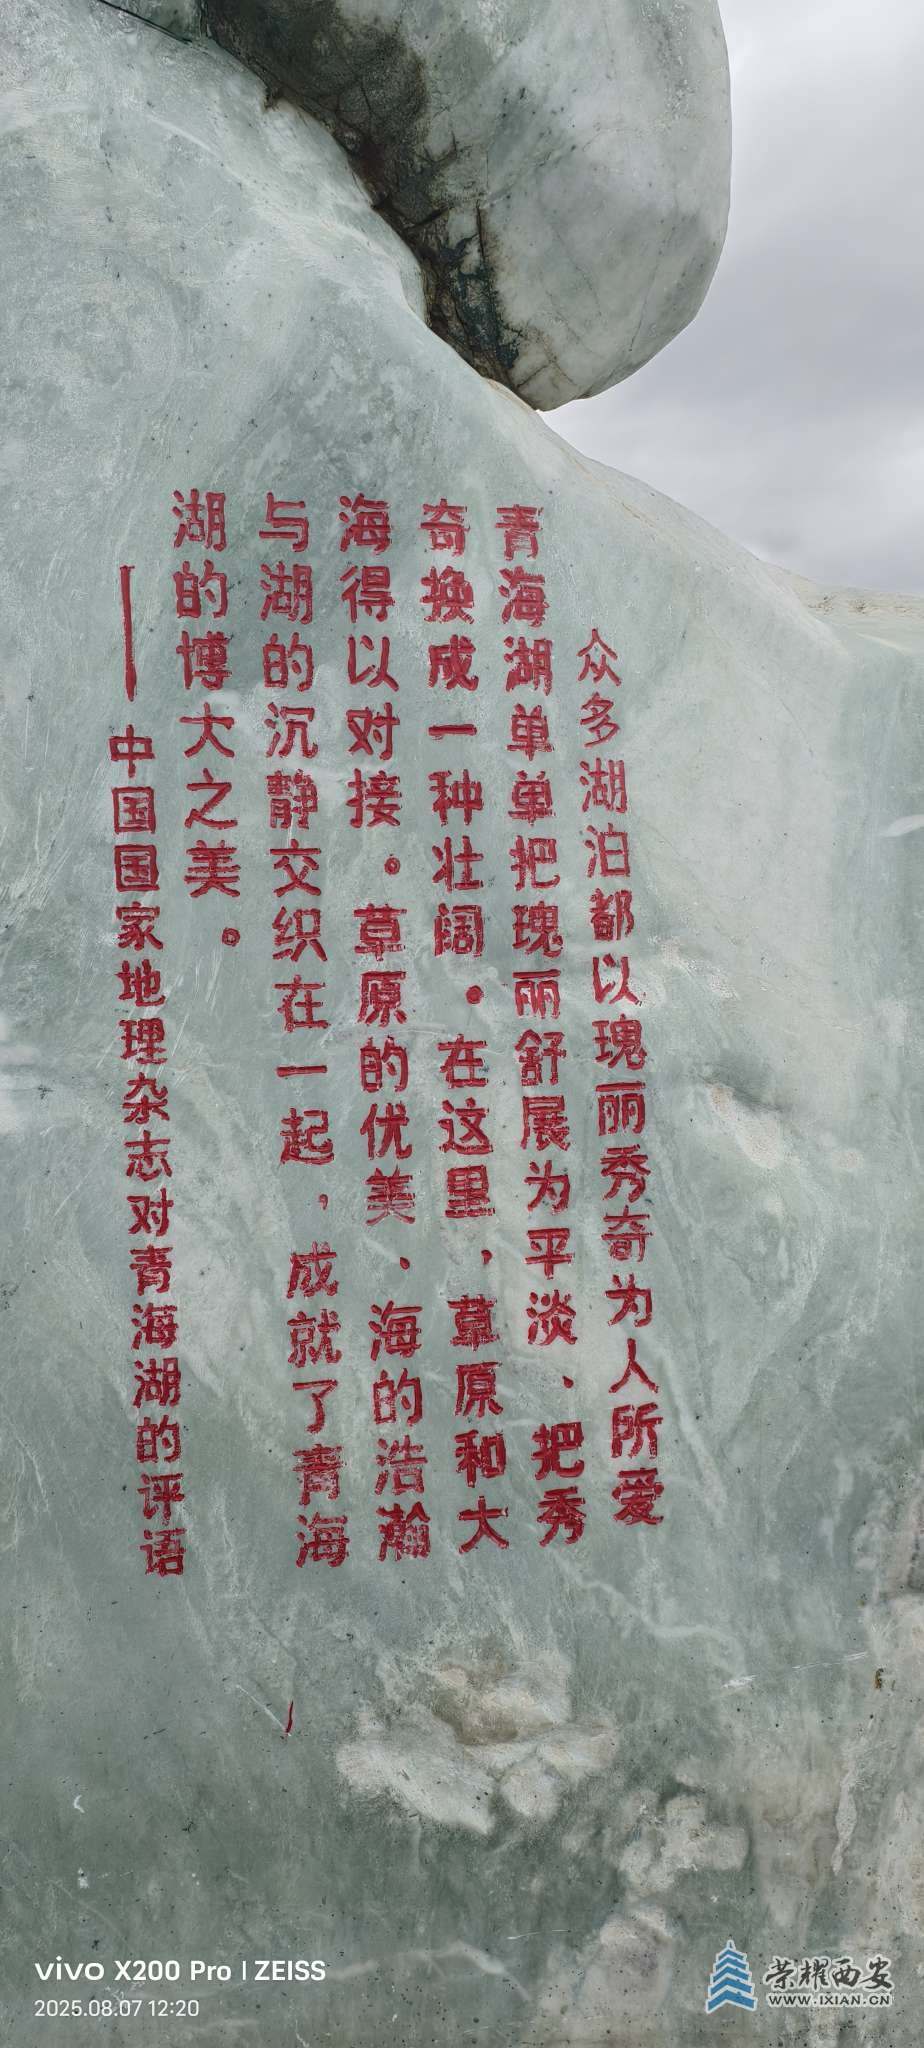 众多湖泊都以瑰丽秀奇为人所爱
青海湖单单把瑰丽舒展为平淡、把秀
奇换成一种壮阔。在这里，草原和大
海得以对接。草原的优美、海的浩瀚
与湖的沉静交织在一起，成就了青海
湖的博大之美。
——中国国家地理杂志对青海湖的评语
vivo X200 Pro | ZEISS
2025.08.07 12:20
荣耀西安
WWW.IXIAN.CN